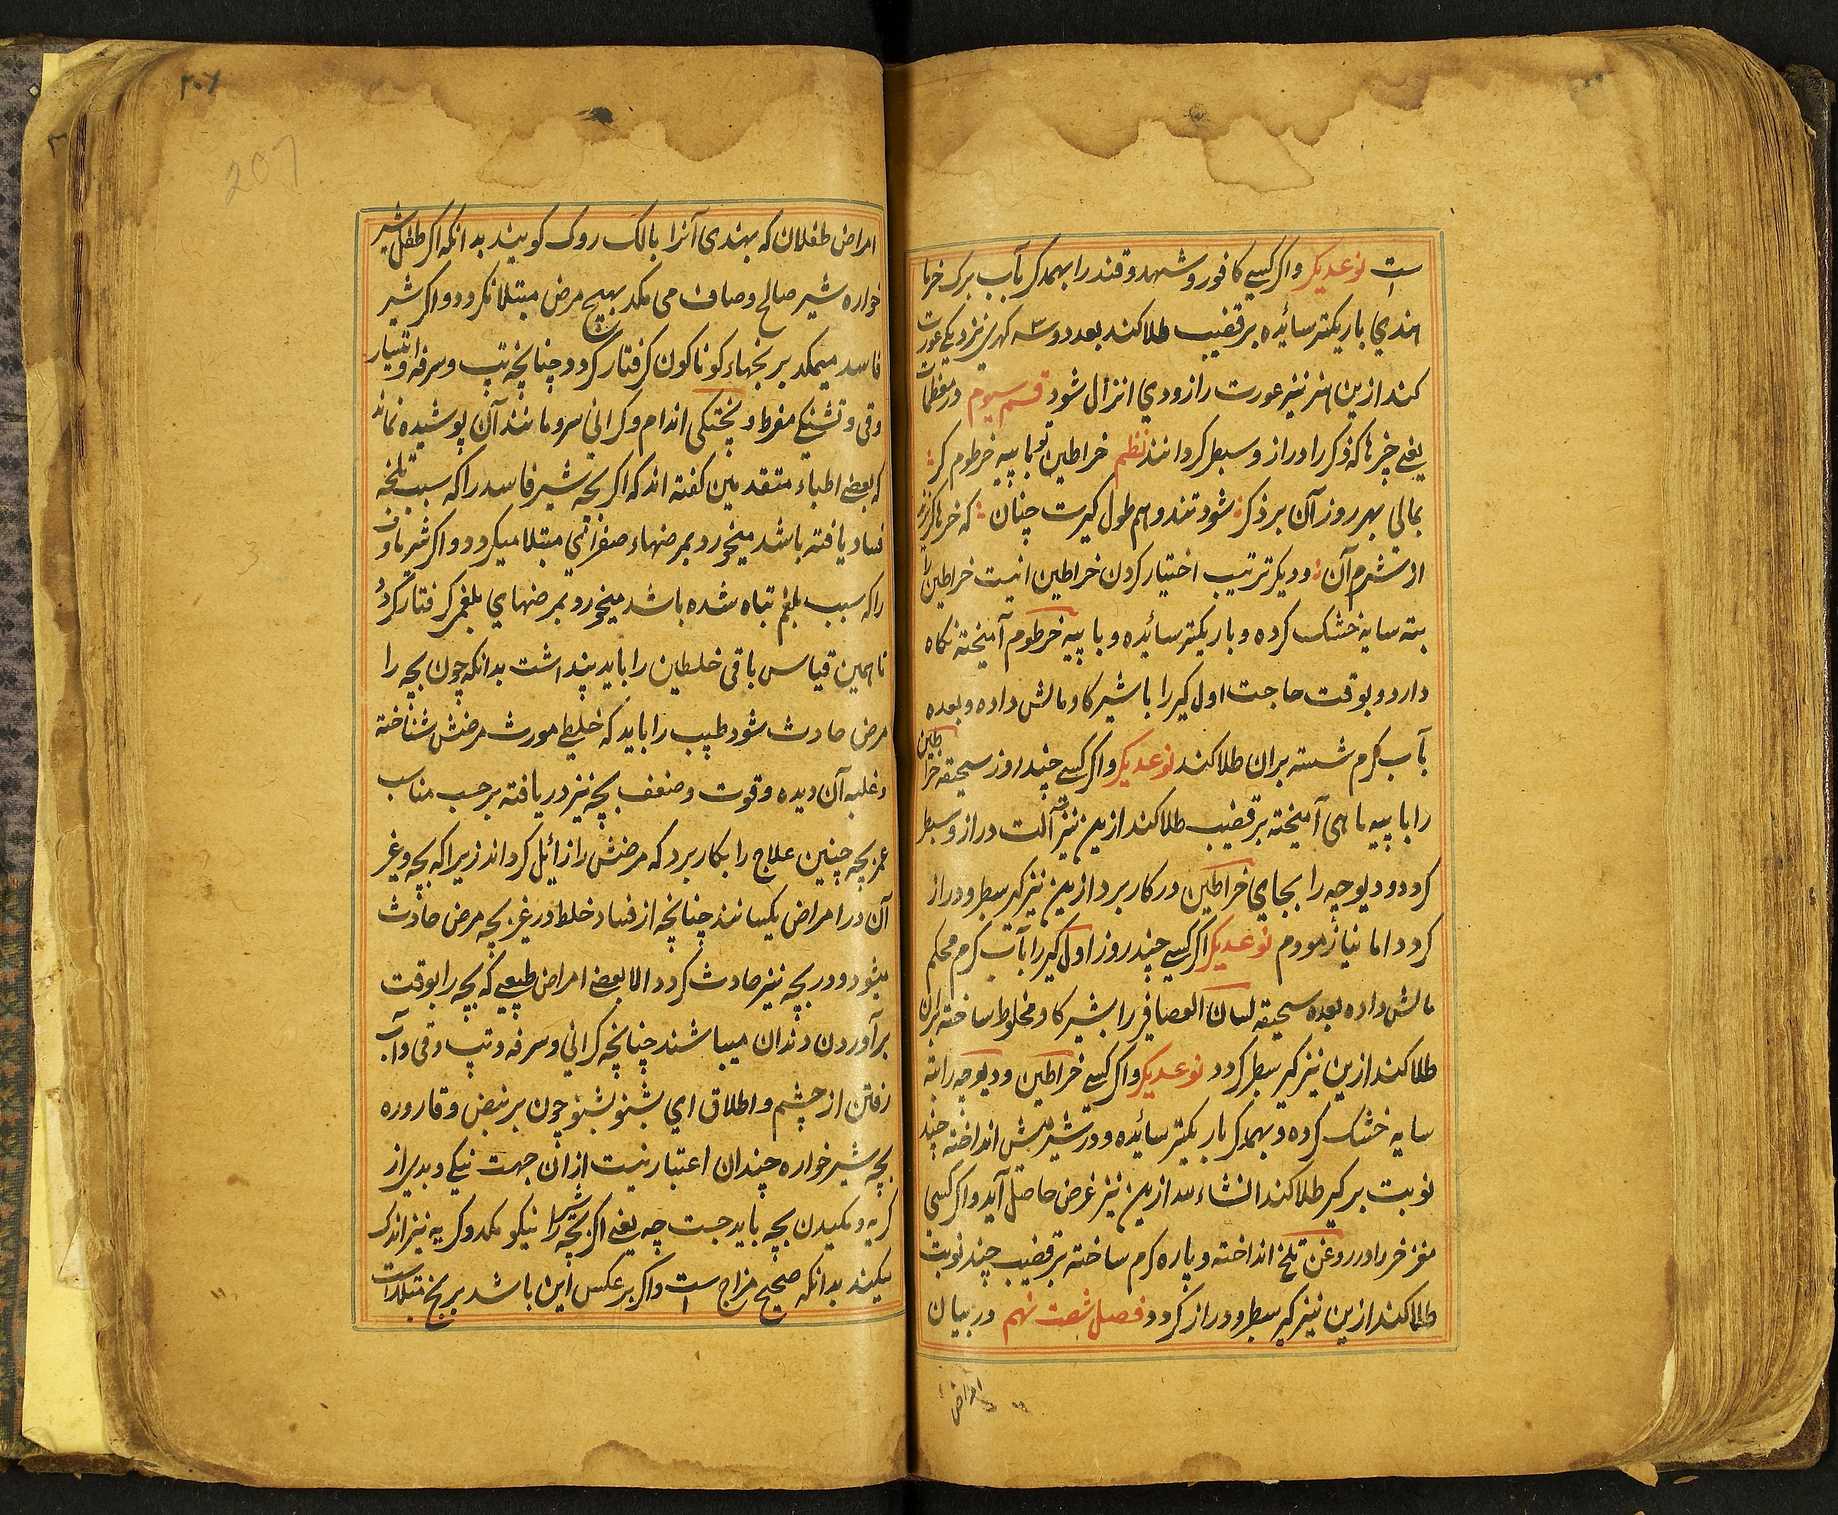 است نوعدیگر واگر کسی کافور و شهد و قند را بهمدگر بآب برگ خرما
هندی باریکتر سائیده بر قضیب طلا کند بعد دو سه گهری نزدیکی عورت
کند ازین هنر نیز عورت را زودی انزال شود قسم سیوم در مغلظات
یعنی چیزها که ذکر را دراز و سطبر گردانند نظم خراطین تو با پیه خرطوم گیر
بمالی بهر روز آن بر ذکر شود تند و هم طول گیرد چنان که خرها گریزند
از شرم آن ودیگر ترتیب اختیار کردن خراطین اینست خراطین را
بته سایه خشک کرده و باریکتر سائیده و با پیه خرطوم آمیخته نگاه
دارد و بوقت حاجت اول کیر را با شیر گاو مالش داده و بعده
بآب گرم شسته بران طلا کند نوعدیگر واگر کسی چند روز سحیقه خراطین
را با پیه ماهی آمیخته بر قضیب طلا کند ازین نیز آلت دراز و سطبر
گردد و دیوچه را بجای خراطین در کار برد ازین نیز کیر سطبر و دراز
گردد اما نیازمودم نوعدیگر اگر کسی چند روز اول کیر را بآب گرم محکم
مالش داده بعده سحیقه لسان العصافیر را بشیر گاو مخلوط ساخته بران
طلا کند ازین نیز کیر سطبر گردد نوعدیگر واگر کسی خراطین و دیوچه را بته
سایه خشک کرده و بهمدگر باریکتر سائیده و در شیر میش انداخته چند
نوبت بر کیر طلا کند انشاء الله ازین نیز غرض حاصل آید واگر کسی
مغز خر را در روغن تلخ انداخته و پاره گرم ساخته بر قضیب چند نوبت
طلا کند ازین نیز کیر سطبر و دراز گردد فصل شصت نهم در بیان
امراض
۲۰۷
207
امراض طفلان که بهندی آنرا بالک روگ گویند بدانکه اگر طفل شیر
خواره شیر صالح و صاف می مکد بهیچ مرض مبتلا نگردد واگر شیر
فاسد میمکد برنجهاء گوناگون گرفتار گردد چنانچه تپ و سرفه و
وقی و تشنگی مفرط و پختگی اندام و گرانی سر و مانند آن پوشیده نماند
که بعضی اطباء متقدمین گفته اند که اگر بچه شیر فاسد را که سبب تلخه
فساد یافته باشد میخورد بمرضهاء صفرائی مبتلا میگردد واگر شیر
را که سبب بلغم تباه شده باشد میخورد بمرضهای بلغمی گرفتار گردد
تا همین قیاس باقی خلطین را باید پنداشت بدانکه چون بچه را
مرض حادث شود طبیب را باید که خلطی مورث مرضش شناخته
و غلبه آن دیده و قوت و ضعف بچه نیز دریافته بر حسب مناسب
عمر بچه چنین علاج را بکار برد که مرضش را زائل گرداند زیرا که بچه و غیر
آن در امراض یکسانند چنانچه از فساد خلط در غیر بچه مرض حادث
میشود و در بچه نیز حادث گردد الا بعضی امراض طبیعی که بچه را بوقت
برآوردن دندان میباشند چنانچه گرانی و سرفه و تپ و قی و آب
رفتن از چشم و اطلاق ای بشنو بشنو چون بر نبض و قاروره
بچه شیرخواره چندان اعتبار نیست ازان جهت نیکی و بدی از
گریه و مکیدن بچه باید جست چه یعنی اگر بچه شیر را نیکو مکد و گریه نیز اندک
میکند بدانکه صحیح مزاج است واگر بر عکس این باشد برنج مبتلا است